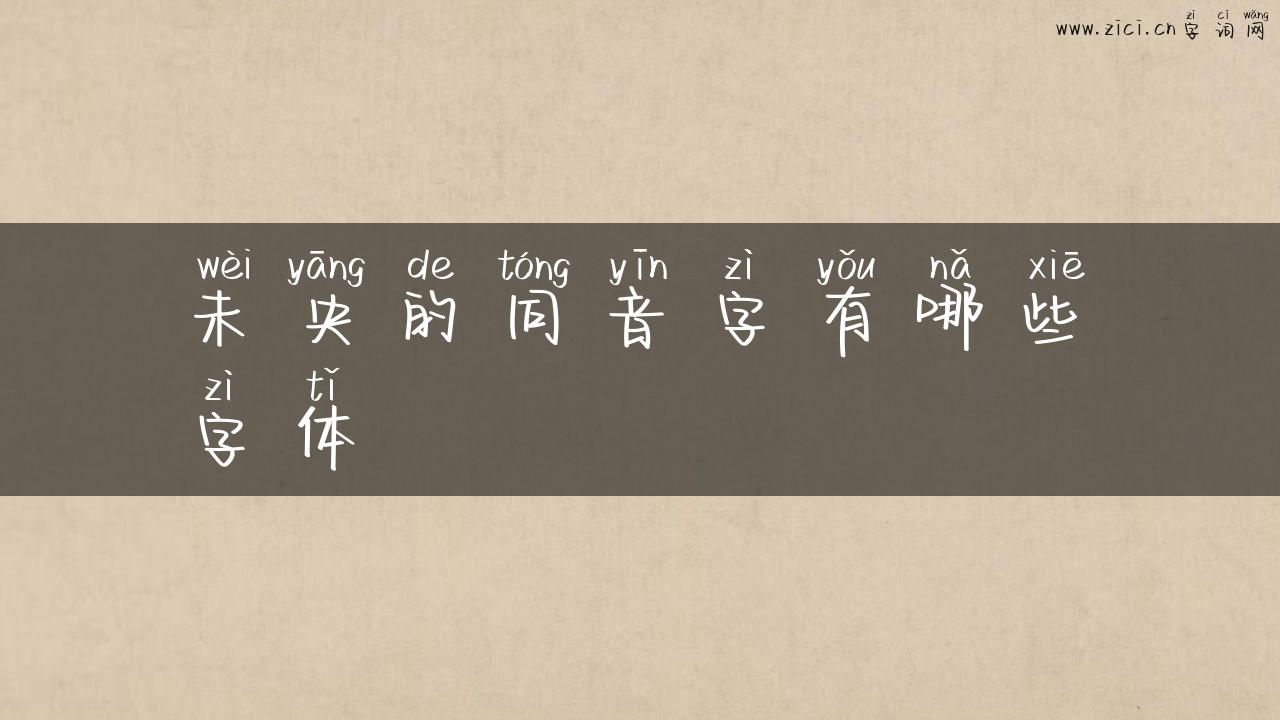 zì cí wǎng
www.zici.cn 字词网
wèi yāng de tóng yīn zì yǒu nǎ xiē
未央的同音字有哪些
zì tǐ
字体